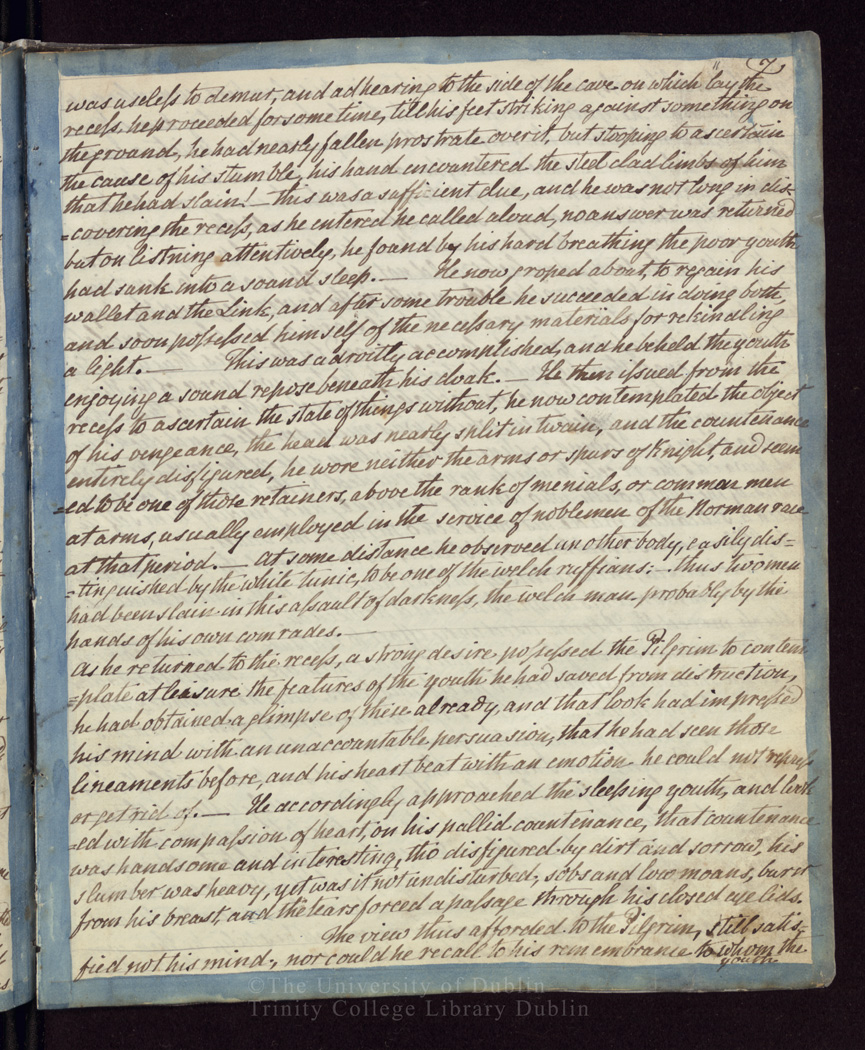 7
was useless to demur, and adhearing to the side of the cave on which lay the
recess, he proceeded for some time, till his feet striking against something on
the ground, he had nearly fallen prostrate over it, but stooping to ascertain
the cause of his stumble, his hand encountered the steel clad limbs of him
that he had slain! — this was a sufficient clue, and he was not long in dis-
=covering the recess, as he entered he called aloud, no answer was returned
but on listning attentively, he found by his hard breathing the poor youth
had sunk into a sound sleep. — He now groped about, to regain his
wallet and the Link, and after some trouble he succeeded in doing both,
and soon possessed himself of the necessary materials for rekindling
a light. — This was adroitly accomplished, and he beheld the youth
enjoying a sound repose beneath his cloak. — He then issued from the
recess to ascertain the state of things without, he now contemplated the object
of his vengeance, the head was nearly split in twain, and the countenance
entirely disfigured, he wore neither the arms or spurs of Knight, and seem
=ed to be one of those retainers, above the rank of menials, or common men
at arms, usually employed in the service of noblemen of the Norman race
at that period. — at some distance he observed another body, easily dis=
=tinguished by the white tunic, to be one of the welch ruffians: — thus two men
had been slain in this assault of darkness, the welch man probably by the
hands of his own comrades. —
As he returned to the recess, a strong desire possessed the Pilgrim to contem
=plate at leasure the features of the youth he had saved from distruction,
he had obtained a glimpse of these already, and that look had impressed
his mind with an unaccountable persuasion, that he had seen those
lineaments before, and his heart beat with an emotion he could not repress
or get rid of. — He accordingly approached the sleeping youth, and look
=ed with compassion of heart, on his pallid countenance, that countenance
was handsome and interesting, tho disfigured by dirt and sorrow, his
slumber was heavy, yet was it not undisturbed, sobs and low moans, burst
from his breast, and the tears forced a passage through his closed eye lids.
The view thus afforded to the Pilgrim, still satis=
fied not his mind, nor could he recall to his remembrance to whom the
youth
©The University of Dublin
Trinity College Library Dublin